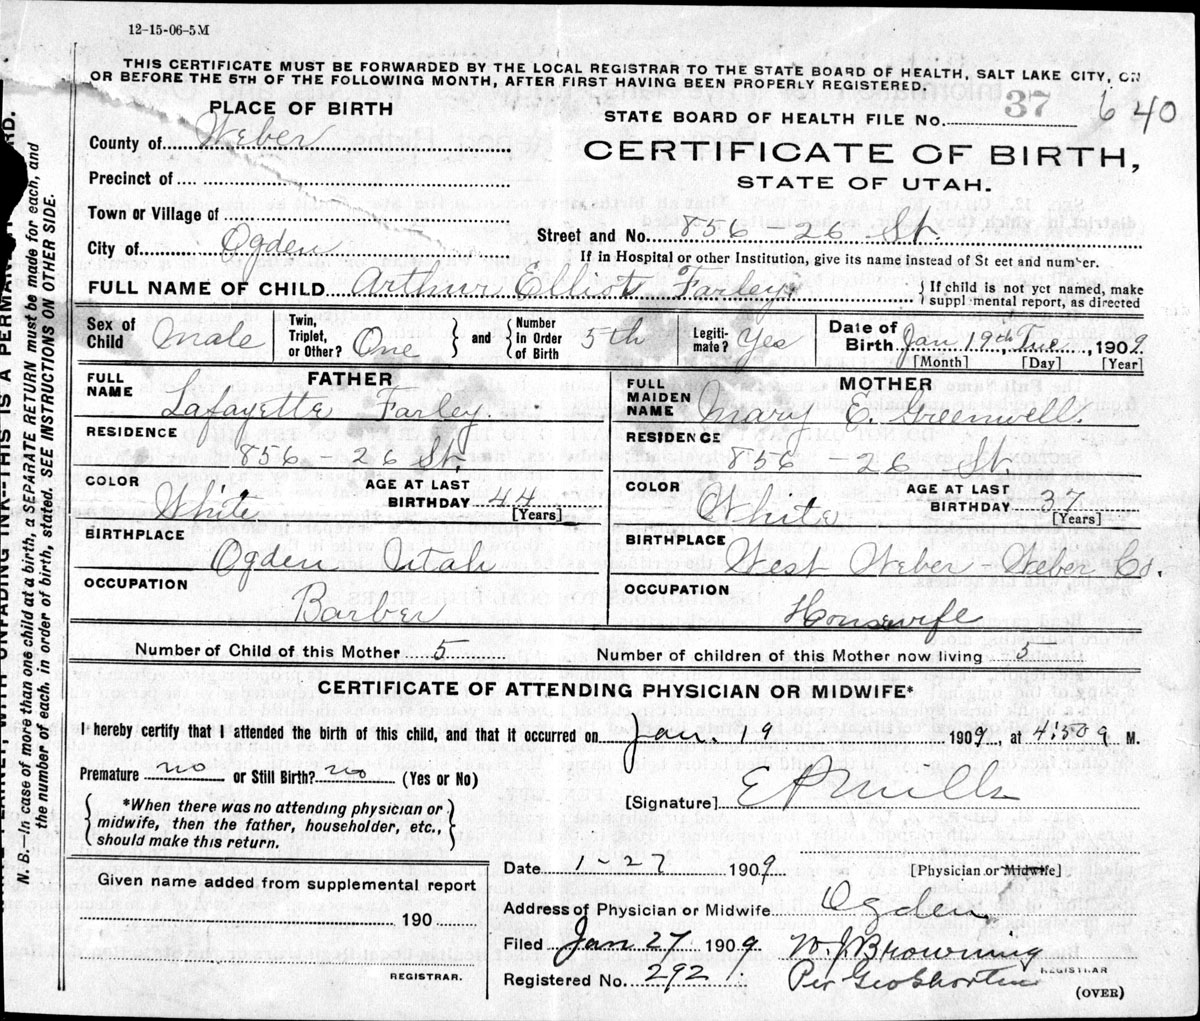 12-15-06-5M
THIS CERTIFICATE MUST BE FORWARDED BY THE LOCAL REGISTRAR TO THE STATE BOARD OF HEALTH, SALT LAKE CITY, ON
OR BEFORE THE 5TH OF THE FOLLOWING MONTH, AFTER FIRST HAVING BEEN PROPERLY REGISTERED.
PLACE OF BIRTH
STATE BOARD OF HEALTH FILE No. 37 640
County of Weber
CERTIFICATE OF BIRTH,
STATE OF UTAH.
Precinct of
Town or Village of
City of Ogden
Street and No. 856 - 26 St.
If in Hospital or other Institution, give its name instead of St eet and number.
FULL NAME OF CHILD Arthur Elliot Farley
If child is not yet named, make
suppl mental report, as directed
Sex of Child Male
Twin, Triplet, or Other? One
and Number in Order of Birth 5th
Legiti-mate? Yes
Date of Birth Jan 19th, Tue, 1909.
[Month] [Day] [Year]
FATHER
FULL NAME Lafayette Farley.
RESIDENCE 856 - 26 St.
COLOR White
AGE AT LAST BIRTHDAY 44 [Years]
BIRTHPLACE Ogden Utah
OCCUPATION Barber
MOTHER
FULL MAIDEN NAME Mary E. Greenwell.
RESIDENCE 856 - 26 St.
COLOR White
AGE AT LAST BIRTHDAY 37 [Years]
BIRTHPLACE West Weber - Weber Co.
OCCUPATION Housewife
Number of Child of this Mother 5
Number of children of this Mother now living 5
CERTIFICATE OF ATTENDING PHYSICIAN OR MIDWIFE*
I hereby certify that I attended the birth of this child, and that it occurred on Jan. 19 1909, at 4:50 a M.
Premature no or Still Birth? no (Yes or No)
*When there was no attending physician or
midwife, then the father, householder, etc.,
should make this return.
[Signature] E P Mills
[Physician or Midwife]
Date 1-27 1909
Address of Physician or Midwife Ogden
Filed Jan 27 1909. W J Browning
REGISTRAR
Registered No. 292 Per Geo Shorten
(OVER)
Given name added from supplemental report
190
REGISTRAR.
N. B.—In case of more than one child at a birth, a SEPARATE RETURN must be made for each, and
the number of each, in order of birth, stated. SEE INSTRUCTIONS ON OTHER SIDE.
WITH UNFADING INK--THIS IS A